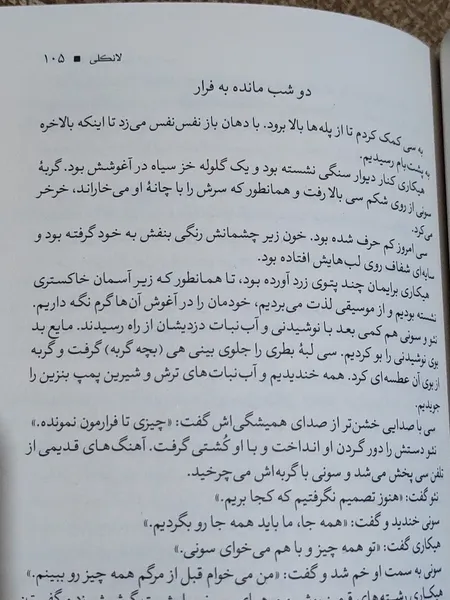 لانکلی ■ ۱۰۵
دو شب مانده به فرار
به سی کمک کردم تا از پله‌ها بالا برود. با دهان باز نفس‌نفس می‌زد تا اینکه بالاخره
به پشت‌بام رسیدیم.
هیکاری کنار دیوار سنگی نشسته بود و یک گلوله خز سیاه در آغوشش بود. گربهٔ
سونی از روی شکم سی بالا رفت و همانطور که سرش را با چانهٔ او می‌خاراند، خرخر
می‌کرد.
سی امروز کم حرف شده بود. خون زیر چشمانش رنگی بنفش به خود گرفته بود و
سایه‌ای شفاف روی لب‌هایش افتاده بود.
هیکاری برایمان چند پتوی زرد آورده بود، تا همانطور که زیر آسمان خاکستری
نشسته بودیم و از موسیقی لذت می‌بردیم، خودمان را در آغوش آن‌ها گرم نگه داریم.
نئو و سونی هم کمی بعد با نوشیدنی و آب‌نبات دزدیشان از راه رسیدند. مایع بد
بوی نوشیدنی را بو کردیم. سی لبهٔ بطری را جلوی بینی هی (بچه گربه) گرفت و گربه
از بوی آن عطسه‌ای کرد. همه خندیدیم و آب‌نبات‌های ترش و شیرین پمپ بنزین را
جویدیم.
سی با صدایی خشن‌تر از صدای همیشگی‌اش گفت: «چیزی تا فرارمون نمونده.»
نئو دستش را دور گردن او انداخت و با او کُشتی گرفت. آهنگ‌های قدیمی از
تلفن سی پخش می‌شد و سونی با گربه‌اش می‌چرخید.
نئو گفت: «هنوز تصمیم نگرفتیم که کجا بریم.»
سونی خندید و گفت: «همه جا، ما باید همه جا رو بگردیم.»
هیکاری گفت: «تو همه چیز و با هم می‌خوای سونی.»
سونی به سمت او خم شد و گفت: «من می‌خوام قبل از مرگم همه چیز رو ببینم.»
هیکاری رشته‌های